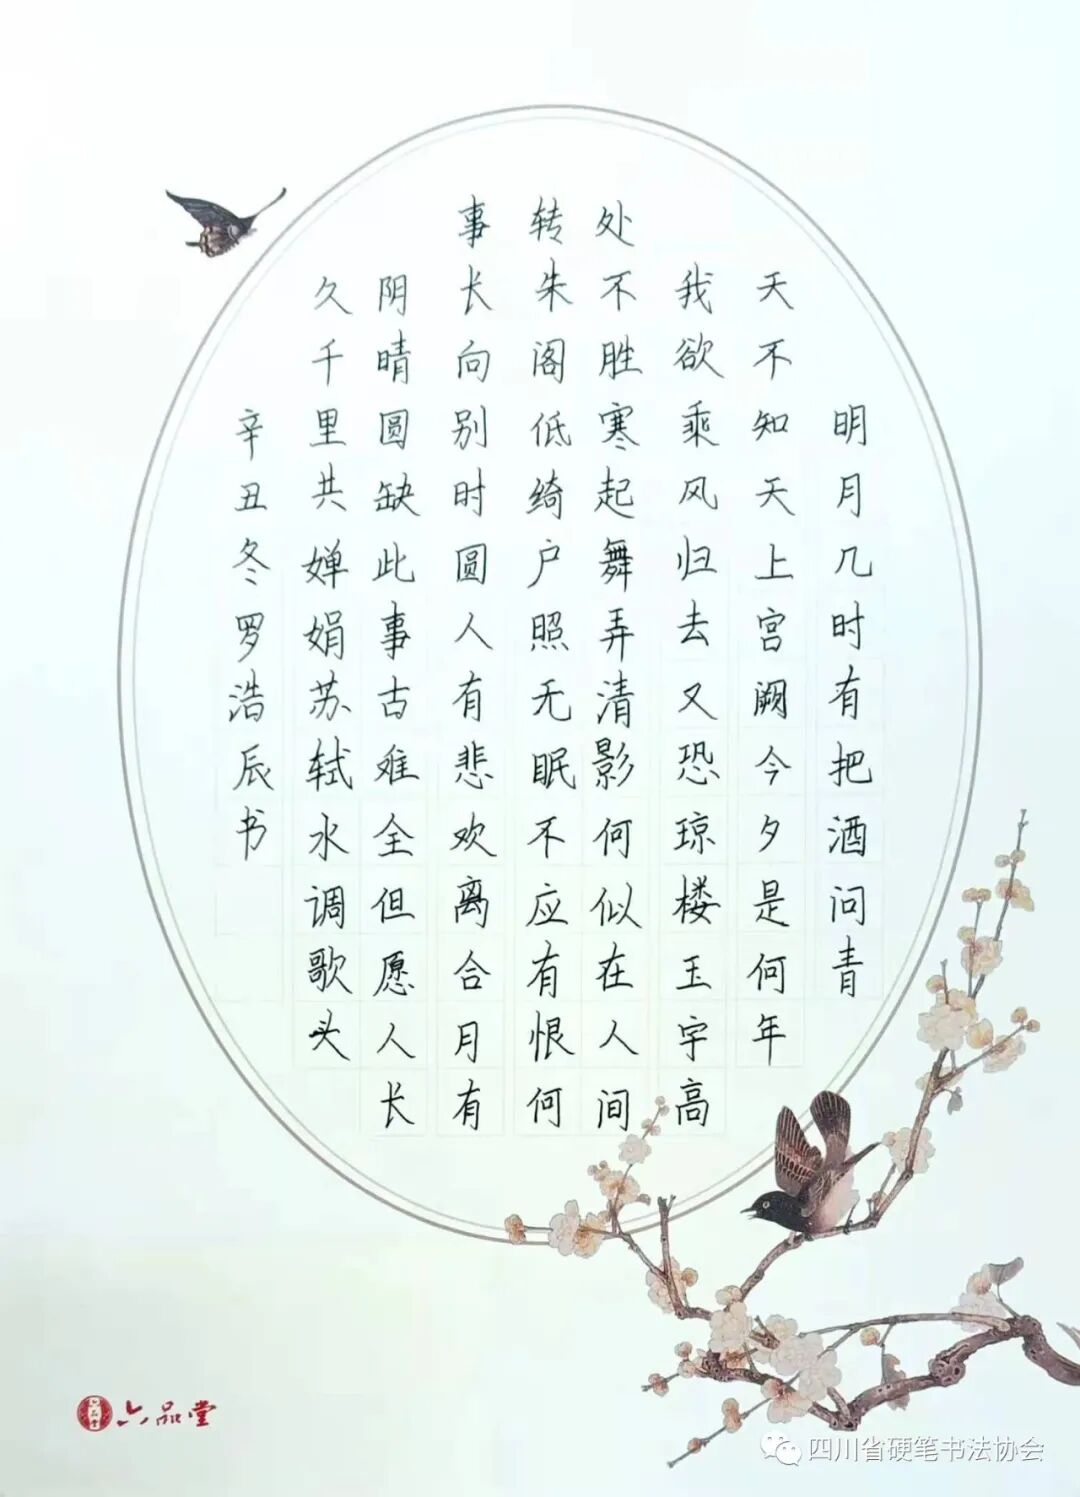 明月几时有把酒问青
天不知天上宫阙今夕是何年
我欲乘风归去又恐琼楼玉宇高
处不胜寒起舞弄清影何似在人间
转朱阁低绮户照无眠不应有恨何
事长向别时圆人有悲欢离合月有
阴晴圆缺此事古难全但愿人长
久千里共婵娟苏轼水调歌头
辛丑冬罗浩辰书
六品堂
六品堂
四川省硬笔书法协会